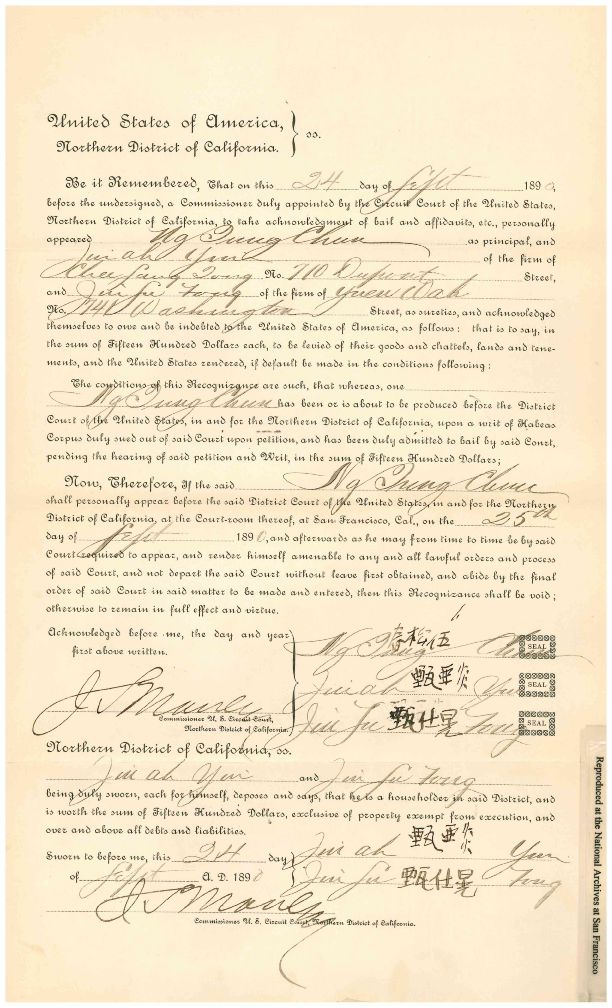 United States of America,
Northern District of California. } ss.
Be it Remembered, That on this 24 day of Sept 1890,
before the undersigned, a Commissioner duly appointed by the Circuit Court of the United States,
Northern District of California, to take acknowledgment of bail and affidavits, etc., personally
appeared Ng Tung Chun as principal, and
Jin ah Yun of the firm of
No. 710 Dupont Street,
and Jin Su Tong of the firm of Yuen Wah
No. Washington Street, as sureties, and acknowledged
themselves to owe and be indebted to the United States of America, as follows: that is to say, in
the sum of Fifteen Hundred Dollars each, to be levied of their goods and chattels, lands and tene-
ments, and the United States rendered, if default be made in the conditions following:
The conditions of this Recognizance are such, that whereas, one
Ng Tung Chun has been or is about to be produced before the District
Court of the United States, in and for the Northern District of California, upon a writ of Habeas
Corpus duly sued out of said Court upon petition, and has been duly admitted to bail by said Court,
pending the hearing of said petition and Writ, in the sum of Fifteen Hundred Dollars;
Now, Therefore, If the said Ng Tung Chun
shall personally appear before the said District Court of the United States, in and for the Northern
District of California, at the Court-room thereof, at San Francisco, Cal., on the 25th
day of Sept 1890, and afterwards as he may from time to time be by said
Court required to appear, and render himself amenable to any and all lawful orders and process
of said Court, and not depart the said Court without leave first obtained, and abide by the final
order of said Court in said matter to be made and entered, then this Recognizance shall be void;
otherwise to remain in full effect and virtue.
Acknowledged before me, the day and year
first above written.
Ng Tung Chun 松伍 SEAL
Jin ah 甄亜 Yun SEAL
Jin Su 甄仕晃 Tong SEAL
Commissioner U. S. Circuit Court,
Northern District of California.
Northern District of California, ss.
Jin ah Yun and Jin Su Tong
being duly sworn, each for himself, deposes and says, that he is a householder in said District, and
is worth the sum of Fifteen Hundred Dollars, exclusive of property exempt from execution, and
over and above all debts and liabilities.
Sworn to before me, this 24 day
of Sept A. D. 1890
Jin ah 甄亜 Yun
Jin Su 甄仕晃 Tong
Commissioner U. S. Circuit Court, Northern District of California.
Reproduced at the National Archives at San Francisco